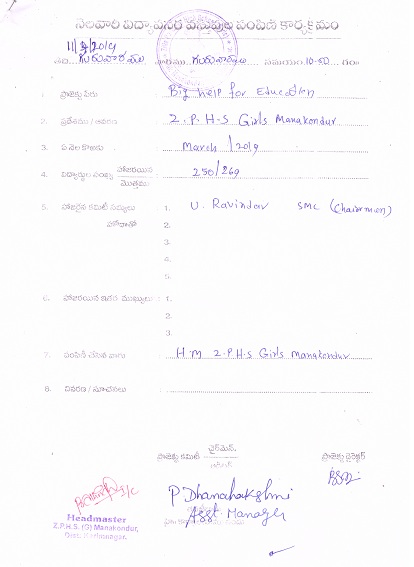 నెలవారి విద్యావసర వస్తువుల పంపిణీ కార్యక్రమం
11/3/2019
గురువారము సమయం 10-50 గం
1. ప్రాజెక్టు పేరు Big help for Education
2. ప్రదేశము / వివరం Z.P.H-S Girls Manakondur
3. ఏ నెల కొరకు March / 2019
4. విద్యార్థుల సంఖ్య హాజరయిన / మొత్తము 250/269
5. హాజరైన కమిటీ సభ్యులు 1. U. Ravinder SMC (Chairman)
హోదాతో 2.
3.
4.
5.
6. హాజరయిన ఇతర ముఖ్యులు : 1.
2.
3.
7. పంపిణీ చేసిన వారు H M Z.P.H-S Girls Manakondur
8. వివరణ / సూచనలు
ప్రాజెక్టు కమిటీ చైర్మెన్, ప్రాజెక్టు డైరెక్టర్
I/C
Headmaster
Z.P.H.S. (G) Manakondur,
Dist: Karimnagar.
P Dhanalakshmi
Asst Manager